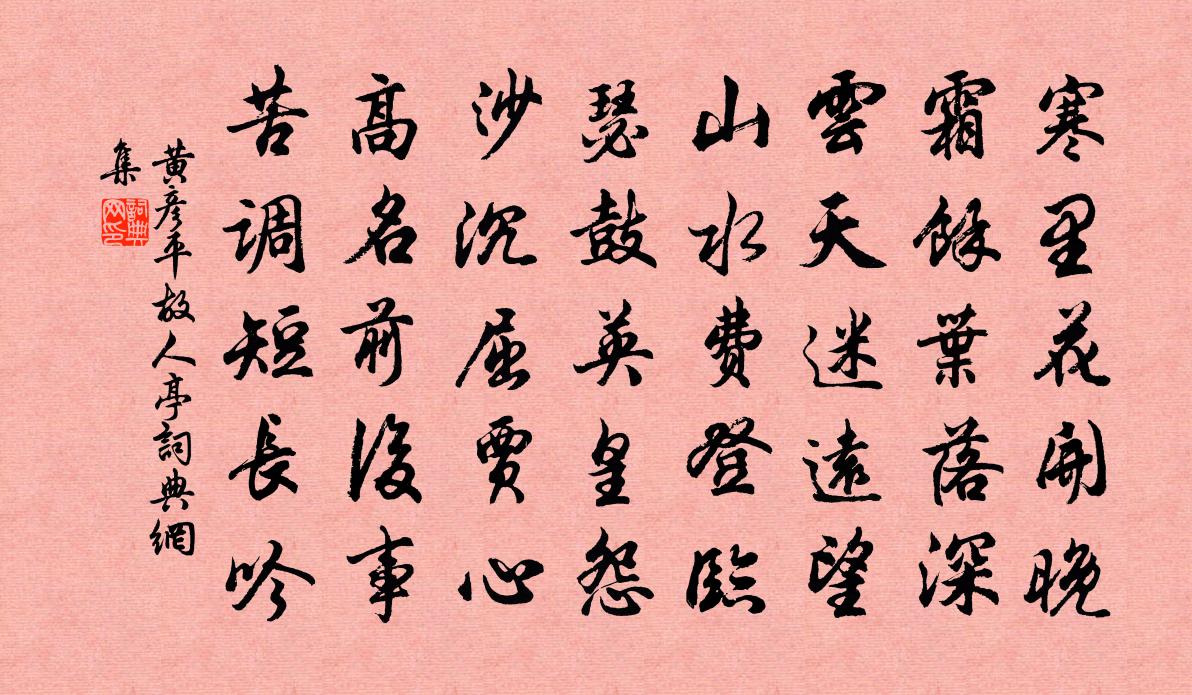 寒里花開晚
霜餘葉落深
雲天迷遠望
山水費登臨
瑟鼓英皇怨
沙沉屈賈心
高名前後事
苦調短長吟
黃彥平故人亭詞典網
集
詞典
网印